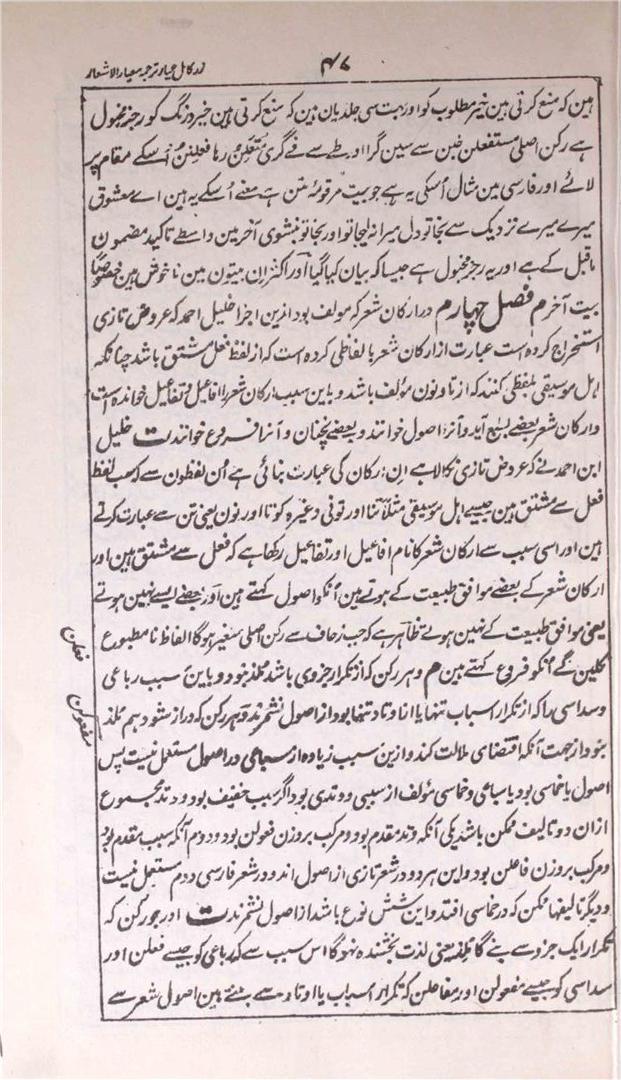 زر کامل عیار ترجمہ معیار الاشعار
۴۷
ہین کہ منع کرتی ہین خیر مطلوب کو اور بہت سی جلدیان ہین کہ منع کرتی ہین خیر درنگ کو رجز مخبول
ہے رکن اصلی مستفعلن خبن سے سین گرا اور طے سے فے گری متعلن رہا فعلتن اُسکے مقام پر
لائے اور فارسی مین مثال اُسکی یہ ہے جو بیت مرقومہ متن ہے معنے اُسکے یہ ہین اے معشوق
میرے میرے نزدیک سے بجا تو دل میرا نہ لیجا تو اور بجا تو نبشوی آخر مین واسطے تاکید مضمون
ماقبل کے ہے اور یہ رجز مخبول ہے جیسا کہ بیان کیا گیا اور اکثر ان بیتون مین ناخوش ہین خصوصاً
بیت آخر م فصل چہارم در ارکان شعر کہ مولف بود ازین اجزا خلیل احمد کہ عروض تازی
استخراج کردہ است عبارت از ارکان شعر بالفاظی کردہ است کہ از لفظ فعل مشتق باشد چنانکہ
اہل موسیقی بلفظی کنند کہ از تا و نون مؤلف باشد و باین سبب ارکان شعر را افاعیل و تفاعیل خواندہ است
و ارکان شعر بعضے بطبع آید و آنرا اصول خوانند و بعضے نچنان و آنرا فروع خوانند ت خلیل
ابن احمد نے کہ عروض تازی نکالا ہے ان ارکان کی عبارت بنائی ہے اُن لفظون سے کہ سب لفظ
فعل سے مشتق ہین جیسے اہل موسیقی مثلاً تنا اور تونی وغیرہ کو تا اور نون یعنی تن سے عبارت کرتے
ہین اور اسی سبب سے ارکان شعر کا نام افاعیل اور تفاعیل رکھا ہے کہ فعل سے مشتق ہین اور
ارکان شعر کے بعضے موافق طبیعت کے ہوتے ہین اُنکو اصول کہتے ہین اور بعضے ایسے نہین ہوتے
یعنی موافق طبیعت کے نہین ہوتے ظاہر ہے کہ جب زحاف سے رکن اصلی متغیر ہوگا الفاظ نامطبوع
نکلین گے اُنکو فروع کہتے ہین م و ہر رکن کہ از تکرار جزوی باشد ملذ نبود و باین سبب رباعی
و سداسی را کہ از تکرار اسباب تنہا یا اوتاد تنہا بود از اصول نشمرند و ہر رکن کہ دراز شود ہم ملذ
نبود از جہت آنکہ اقتضای ملالت کند و ازین سبب زیادہ از سباعی در اصول مستعمل نیست پس
اصول یا خماسی بود یا سباعی و خماسی مؤلف از سببی و وتدی بود اگر سبب خفیف بود و وتد مجموع
ازان دو تالیف ممکن باشد یکی آنکہ وتد مقدم بود و مرکب بروزن فعولن بود و دوم آنکہ سبب مقدم بود
و مرکب بروزن فاعلن بود و این ہر دو در شعر تازی از اصول اند و در شعر فارسی دوم مستعمل نیست
و دیگر تالیفہا ممکن کہ در خماسی افتد و این شش نوع باشد از اصول نشمرند ت اور جو رکن کہ
تکرار ایک جزو سے بنے گا ملذ یعنی لذت بخشندہ نہوگا اس سبب سے کہ رباعی کو جیسے فعلن اور
سداسی کو جیسے مفعولن اور مفاعلن کہ تکرار اسباب یا اوتاد سے بنتے ہین اصول شعر سے
فعلن
مفعولن